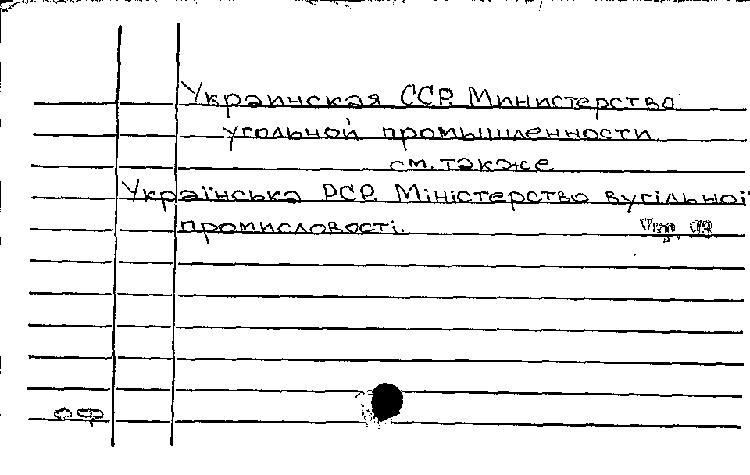 Украинская ССР. Министерство
угольной промышленности
см. также
Українська РСР. Міністерство вугільної
промисловості.
оф